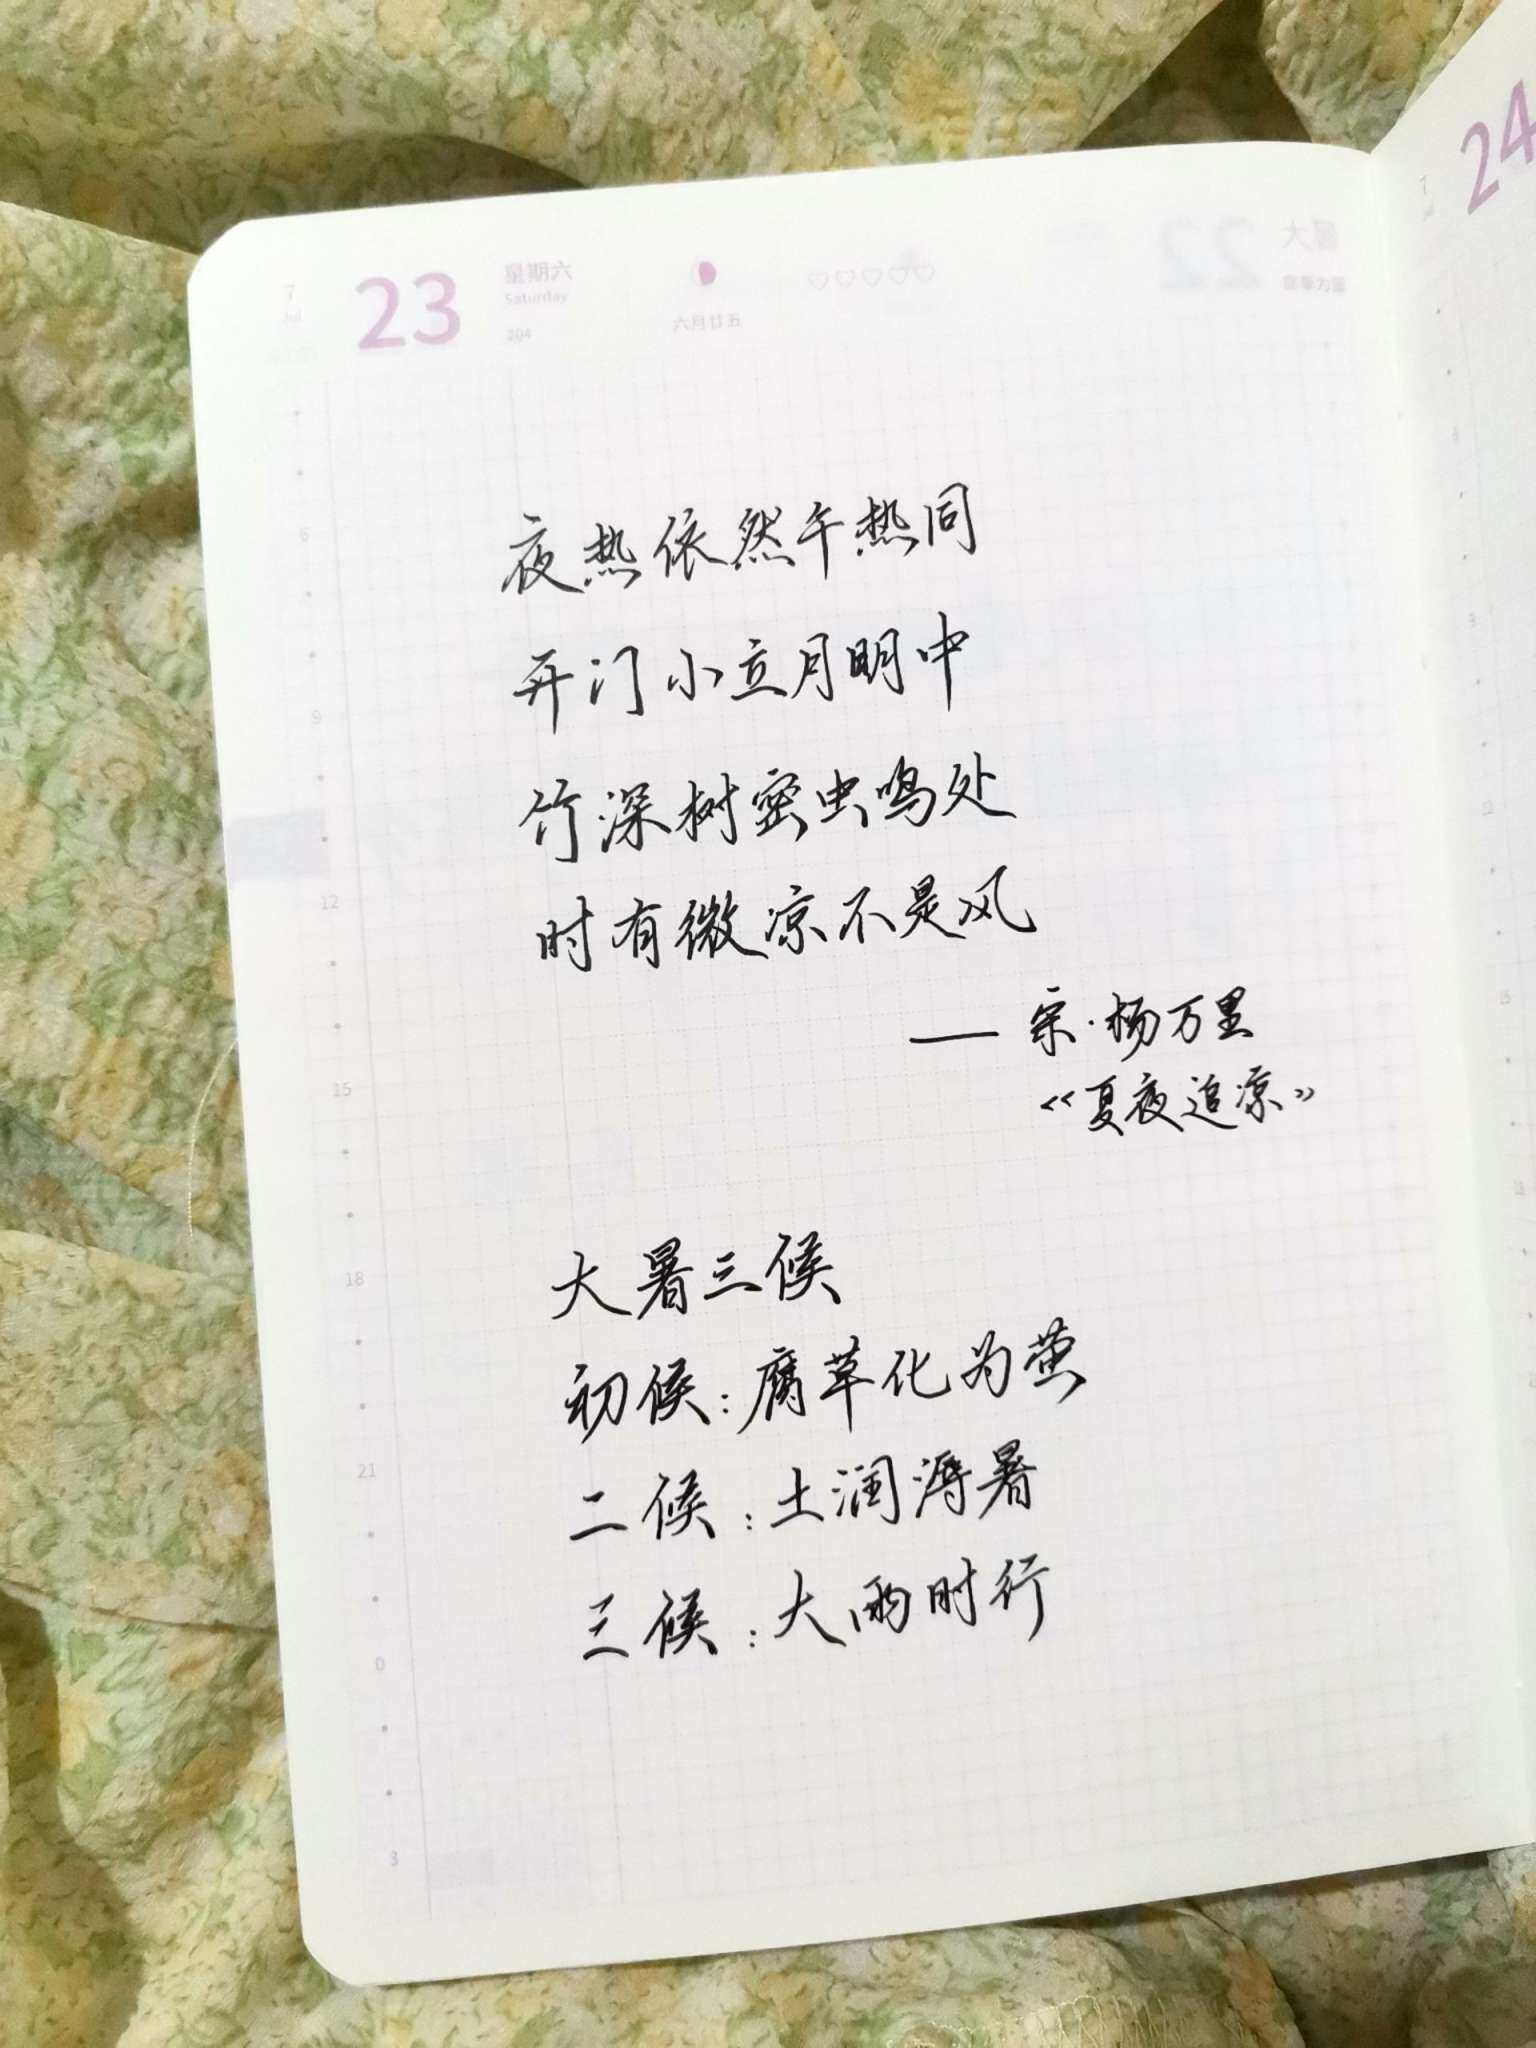 7
Jul
23
星期六
Saturday
204
六月廿五
24
7
夜热依然午热同
开门小立月明中
竹深树密虫鸣处
时有微凉不是风
—— 宋·杨万里
《夏夜追凉》
大暑三候
初候：腐草化为萤
二候：土润溽暑
三候：大雨时行
6
9
12
15
18
21
0
3